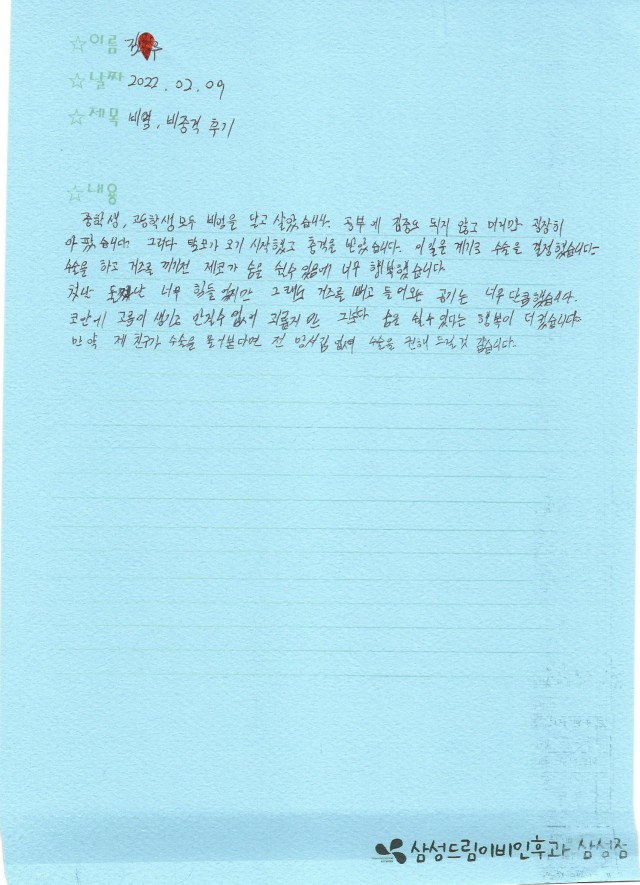 ☆이름
☆날짜 2022. 02. 09
☆제목 비염, 비중격 후기
☆내용
중학생, 고등학생 모두 비염을 앓고 살았습니다. 공부에 집중도 되지 않고 머리만 굉장히
아팠습니다. 그러다 탈모가 오기 시작했고 충격을 받았습니다. 이 일을 계기로 수술을 결정했습니다.
수술을 하고 거즈를 끼기전 제코가 숨을 쉴수 있음에 너무 행복했습니다.
첫난 너무 힘들었지만 그래도 거즈를 빼고 들어오는 공기는 너무 달콤했습니다.
코안에 고름이 생기고 만질수 없어 괴롭지만 그보다 숨을 쉴 수 있다는 행복이 더 컸습니다.
만약 제 친구가 수술을 물어본다면 전 망설임 없이 수술을 권해 드릴것 같습니다.
삼성드림이비인후과 삼성점